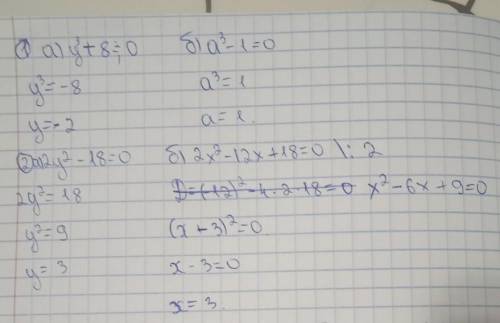 ① а) y³+8=0 б) a³-1=0
y³=-8 a³=1
y=-2 a=1.
② а) 2y²-18=0 б) 2x²-12x+18=0 \: 2
2y²=18 D=(-12)²-4·2·18=0 x²-6x+9=0
y²=9 (x-3)²=0
y=3 x-3=0
x=3.